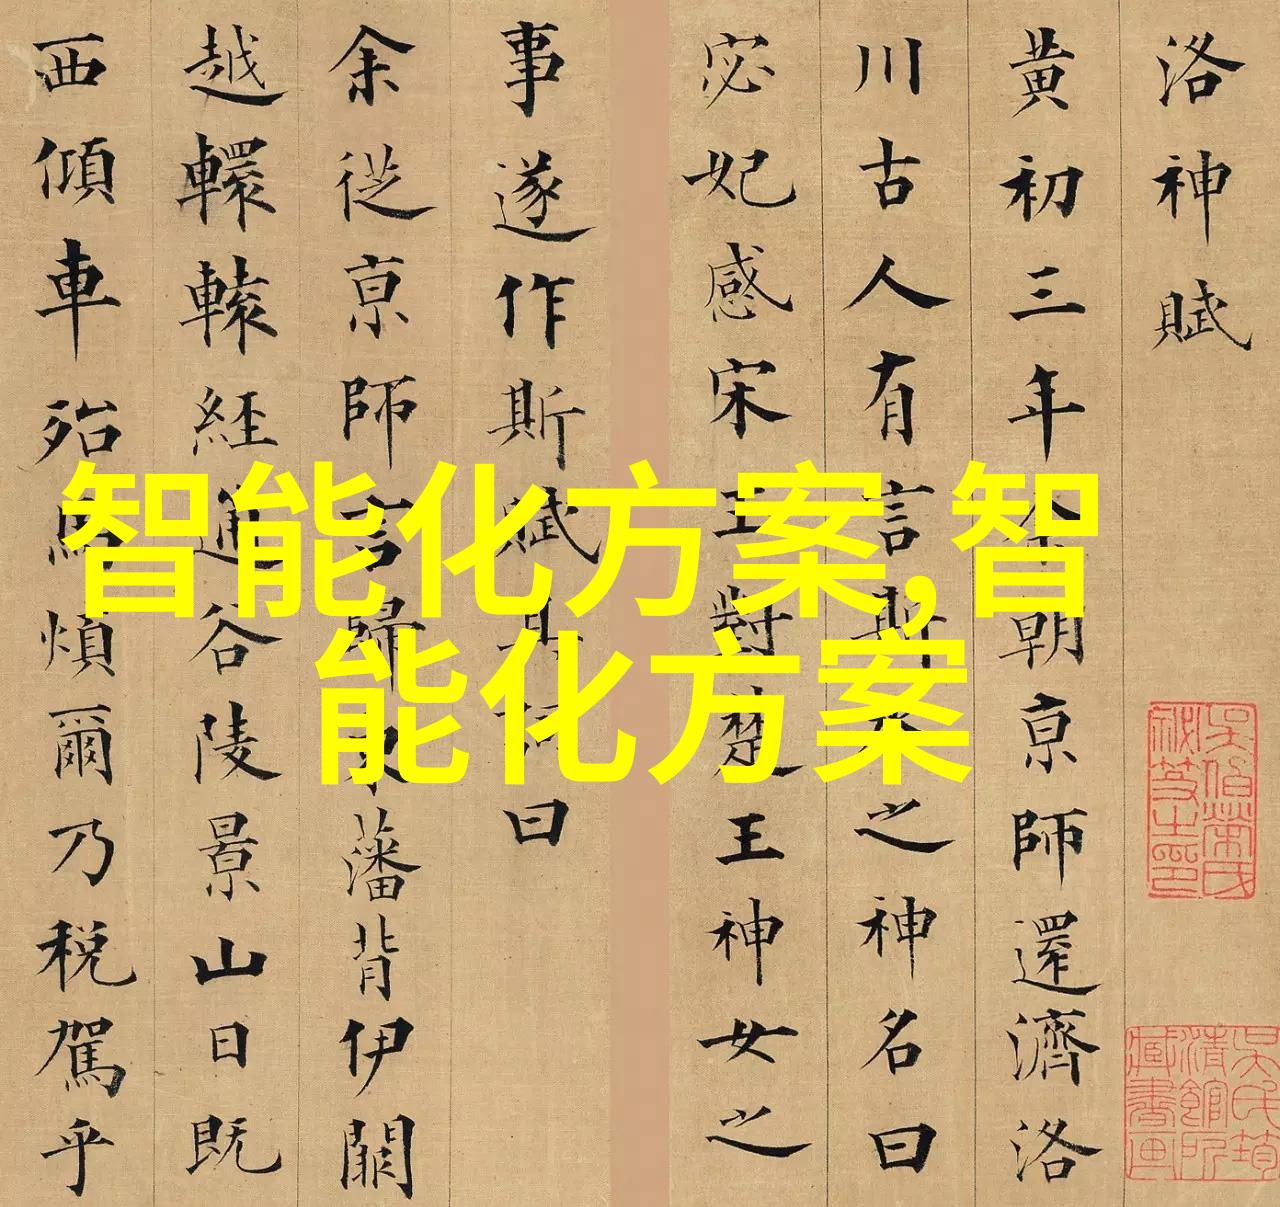 洛神賦
黄初三年余朝京師還濟洛
川古人有言斯水之神名曰
宓妃感宋玉對楚王神女之
事遂作斯賦其詞曰
余從京師言歸東藩背伊闕
越轘轅經通谷陵景山日既
西傾車殆馬煩爾乃稅駕乎
智能化方案,智
能化方案